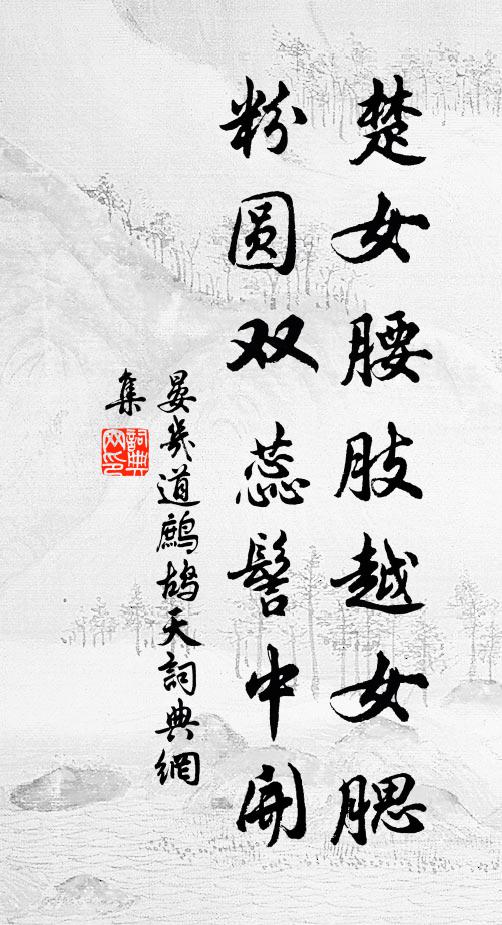 楚女腰肢越女腮
粉圆双蕊髻中开
晏几道鹧鸪天詞典網
集
詞典網印